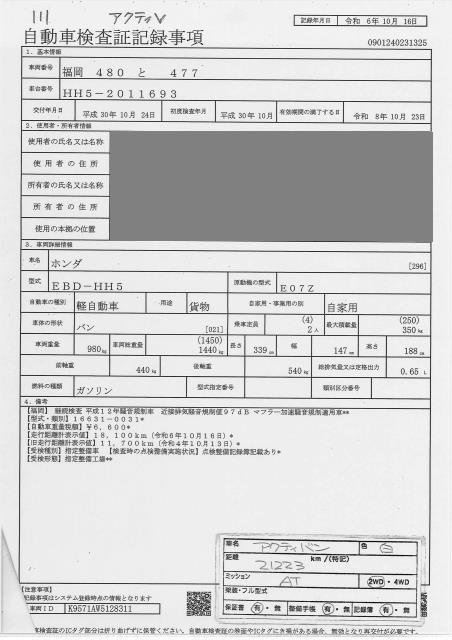 111 アクティV
記録年月日 令和 6年10月 16日
自動車検査証記録事項
0901240231325
1. 基本情報
車両番号 福岡 480 と 477
車台番号 HH5-2011693
交付年月日 平成 30年10月 24日 初度検査年月 平成 30年10月 有効期間の満了する日 令和 8年10月 23日
2. 使用者・所有者情報
使用者の氏名又は名称
使用者の住所
所有者の氏名又は名称
所有者の住所
使用の本拠の位置
3. 車両詳細情報
車名 ホンダ [296]
型式 EBD-HH5 原動機の型式 E07Z
自動車の種別 軽自動車 用途 貨物 自家用・事業用の別 自家用
車体の形状 バン [021] 乗車定員 (4) 2人 最大積載量 (250) 350kg
車両重量 980kg 車両総重量 (1450) 1440kg 長さ 339cm 幅 147cm 高さ 188cm
前軸重 440kg 後軸重 540kg 総排気量又は定格出力 0.65 L
燃料の種類 ガソリン 型式指定番号 類別区分番号
4. 備考
【福岡】 継続検査 平成12年騒音規制車 近接排気騒音規制値97dB マフラー加速騒音規制適用車**
【型式・類別】16631-0031*
【自動車重量税額】¥6,600*
【走行距離計表示値】18,100km (令和6年10月16日)*
【旧走行距離計表示値】11,700km (令和4年10月13日)*
【受検種別】指定整備車 【検査時の点検整備実施状況】点検整備記録簿記載あり*
【受検形態】指定整備工場**
車名 アクティバン 色 白
距離 21223 km /(特記)
ミッション AT 2WD・4WD
架装・フル型式
保証書 有・無 整備手帳 有・無 記録簿 有・無
【注意事項】
記録事項はシステム登録時点の情報となります
車両ID K9571AW5128311
車検査証のICタグ部分は折り曲げずに保管ください。自動車検査証の券面やICタグにき損がある場合、無効となり再交付が必要です。